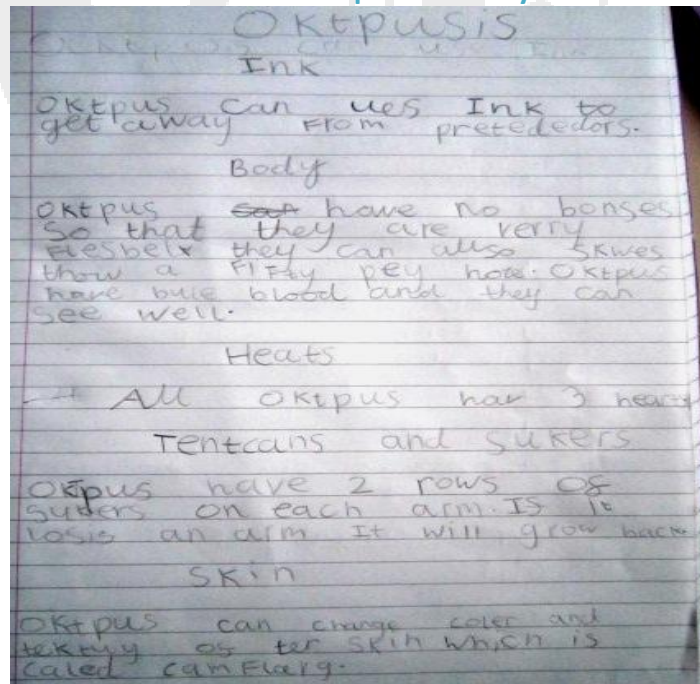 Oktpusis
Ink
Oktpus can ues Ink to
get away From pretededors.
Body
Oktpus have no bonses
So that they are verry
Flesbelx they can allso skwes
thow a FiFty pey hole. Oktpus
have bule blood and they can
see well.
Heats
All Oktpus hav 3 heart
Tentcans and sukers
Oktpus have 2 rows of
suters on each arm. Is it
losis an arm It will grow back
Skin
Oktpus can change coler and
of ter skin which is
caled camFlarg.